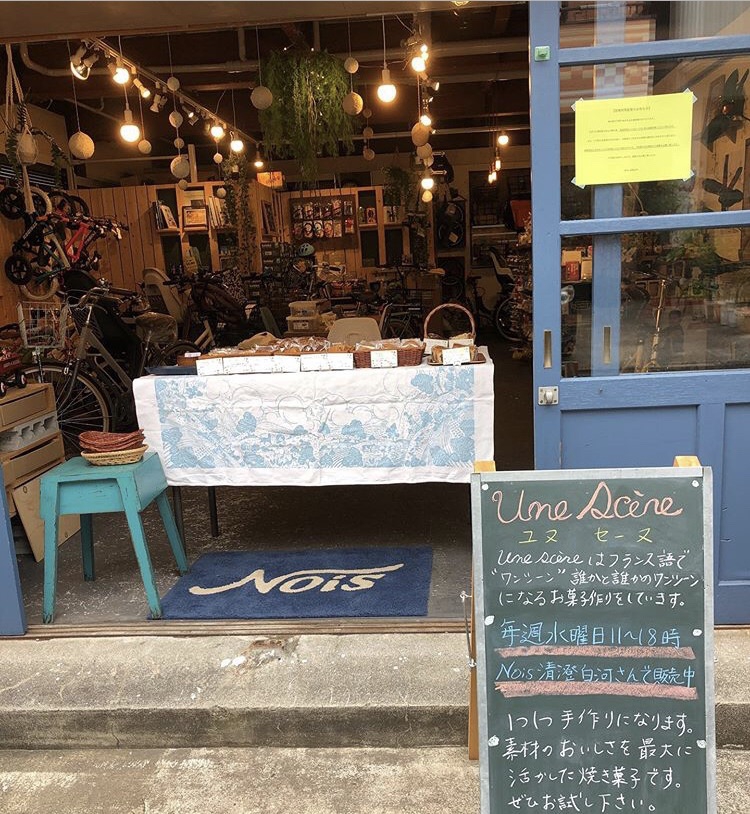 Nois
Une Scène
ユヌ セーヌ
Une scène はフランス語で
"ワンシーン" 誰かと誰かのワンシーン
になるお菓子作りをしています。
毎週水曜日11〜18時
Nois清澄白河さんで販売中
1つ1つ手作りになります。
素材のおいしさを最大に
活かした焼き菓子です。
ぜひお試し下さい。